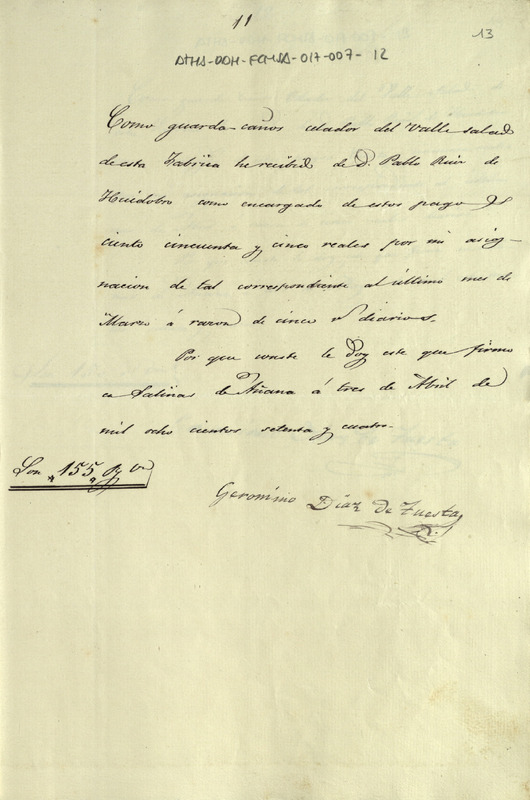 11
13
ATHA-DDH-FGHSA-017-007-12
Como guarda-caños celador del Valle salado
de esta Fabrica he recibido de D. Pablo Ruiz de
Huidobro como encargado de estos pagos
ciento cincuenta y cinco reales por mi asig-
nacion de tal correspondiente al último mes de
Marzo á razon de cinco rs diarios.
Poi que conste le doy este que firmo
en Salinas de Añana á tres de Abril de
mil ocho cientos setenta y cuatro.
Son 155 rs vn
Geronimo Díaz de Tuesta